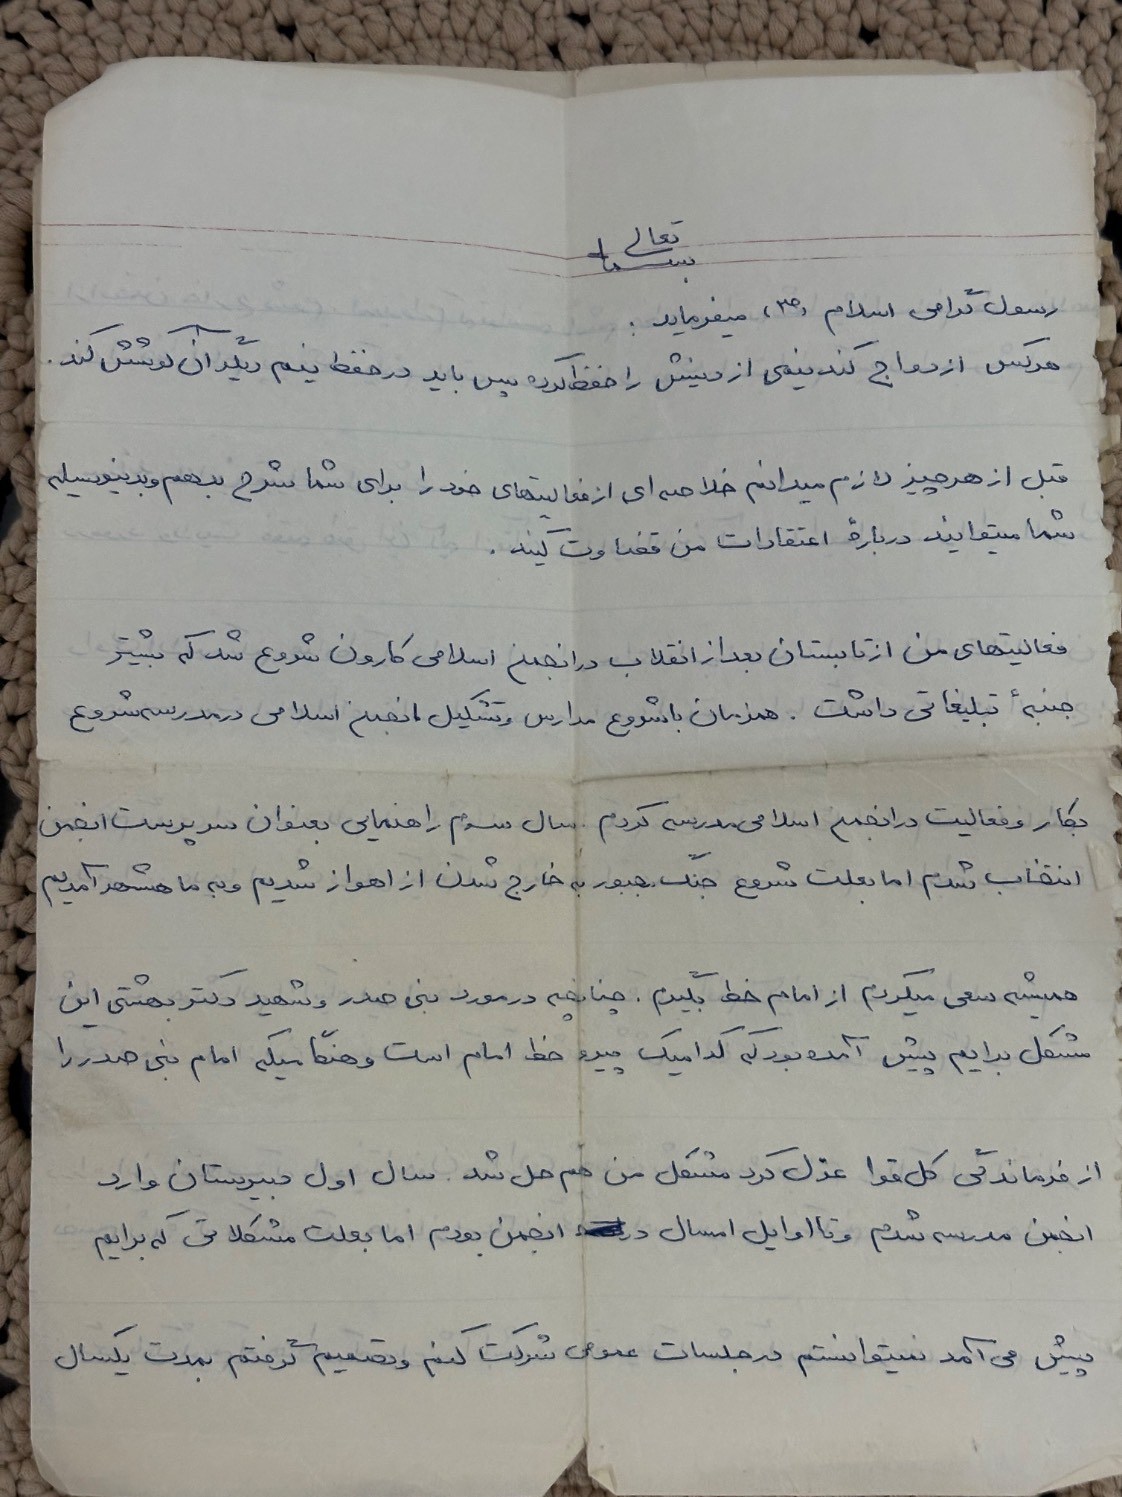 بسمه تعالی
رسول گرامی اسلام (ص) میفرماید :
هرکس ازدواج کند نیمی از دینش را حفظ کرده پس باید در حفظ نیم دیگر آن کوشش کند .
قبل از هر چیز لازم میدانم خلاصه ای از فعالیتهای خود را برای شما شرح بدهم و بدینوسیله
شما میتوانید دربارهٔ اعتقادات من قضاوت کنید .
فعالیتهای من از تابستان بعد از انقلاب در انجمن اسلامی کارون شروع شد که بیشتر
جنبهٔ تبلیغاتی داشت . همزمان با شروع مدارس و تشکیل انجمن اسلامی در مدرسه شروع
بکار و فعالیت در انجمن اسلامی مدرسه کردم . سال سوم راهنمایی بعنوان سرپرست انجمن
انتخاب شدم اما بعلت شروع جنگ مجبور به خارج شدن از اهواز شدیم و به ماهشهر آمدیم
همیشه سعی میکردم از امام خط بگیرم . چنانچه در مورد بنی صدر و شهید دکتر بهشتی این
مشکل برایم پیش آمده بود که کدامیک پیرو خط امام است و هنگامیکه امام بنی صدر را
از فرماندگی کل قوا عزل کرد مشکل من هم حل شد . سال اول دبیرستان وارد
انجمن مدرسه شدم و تا اوایل امسال در انجمن بودم اما بعلت مشکلاتی که برایم
پیش می آمد نمیتوانستم در جلسات عمومی شرکت کنم و تصمیم گرفتم بمدت یکسال